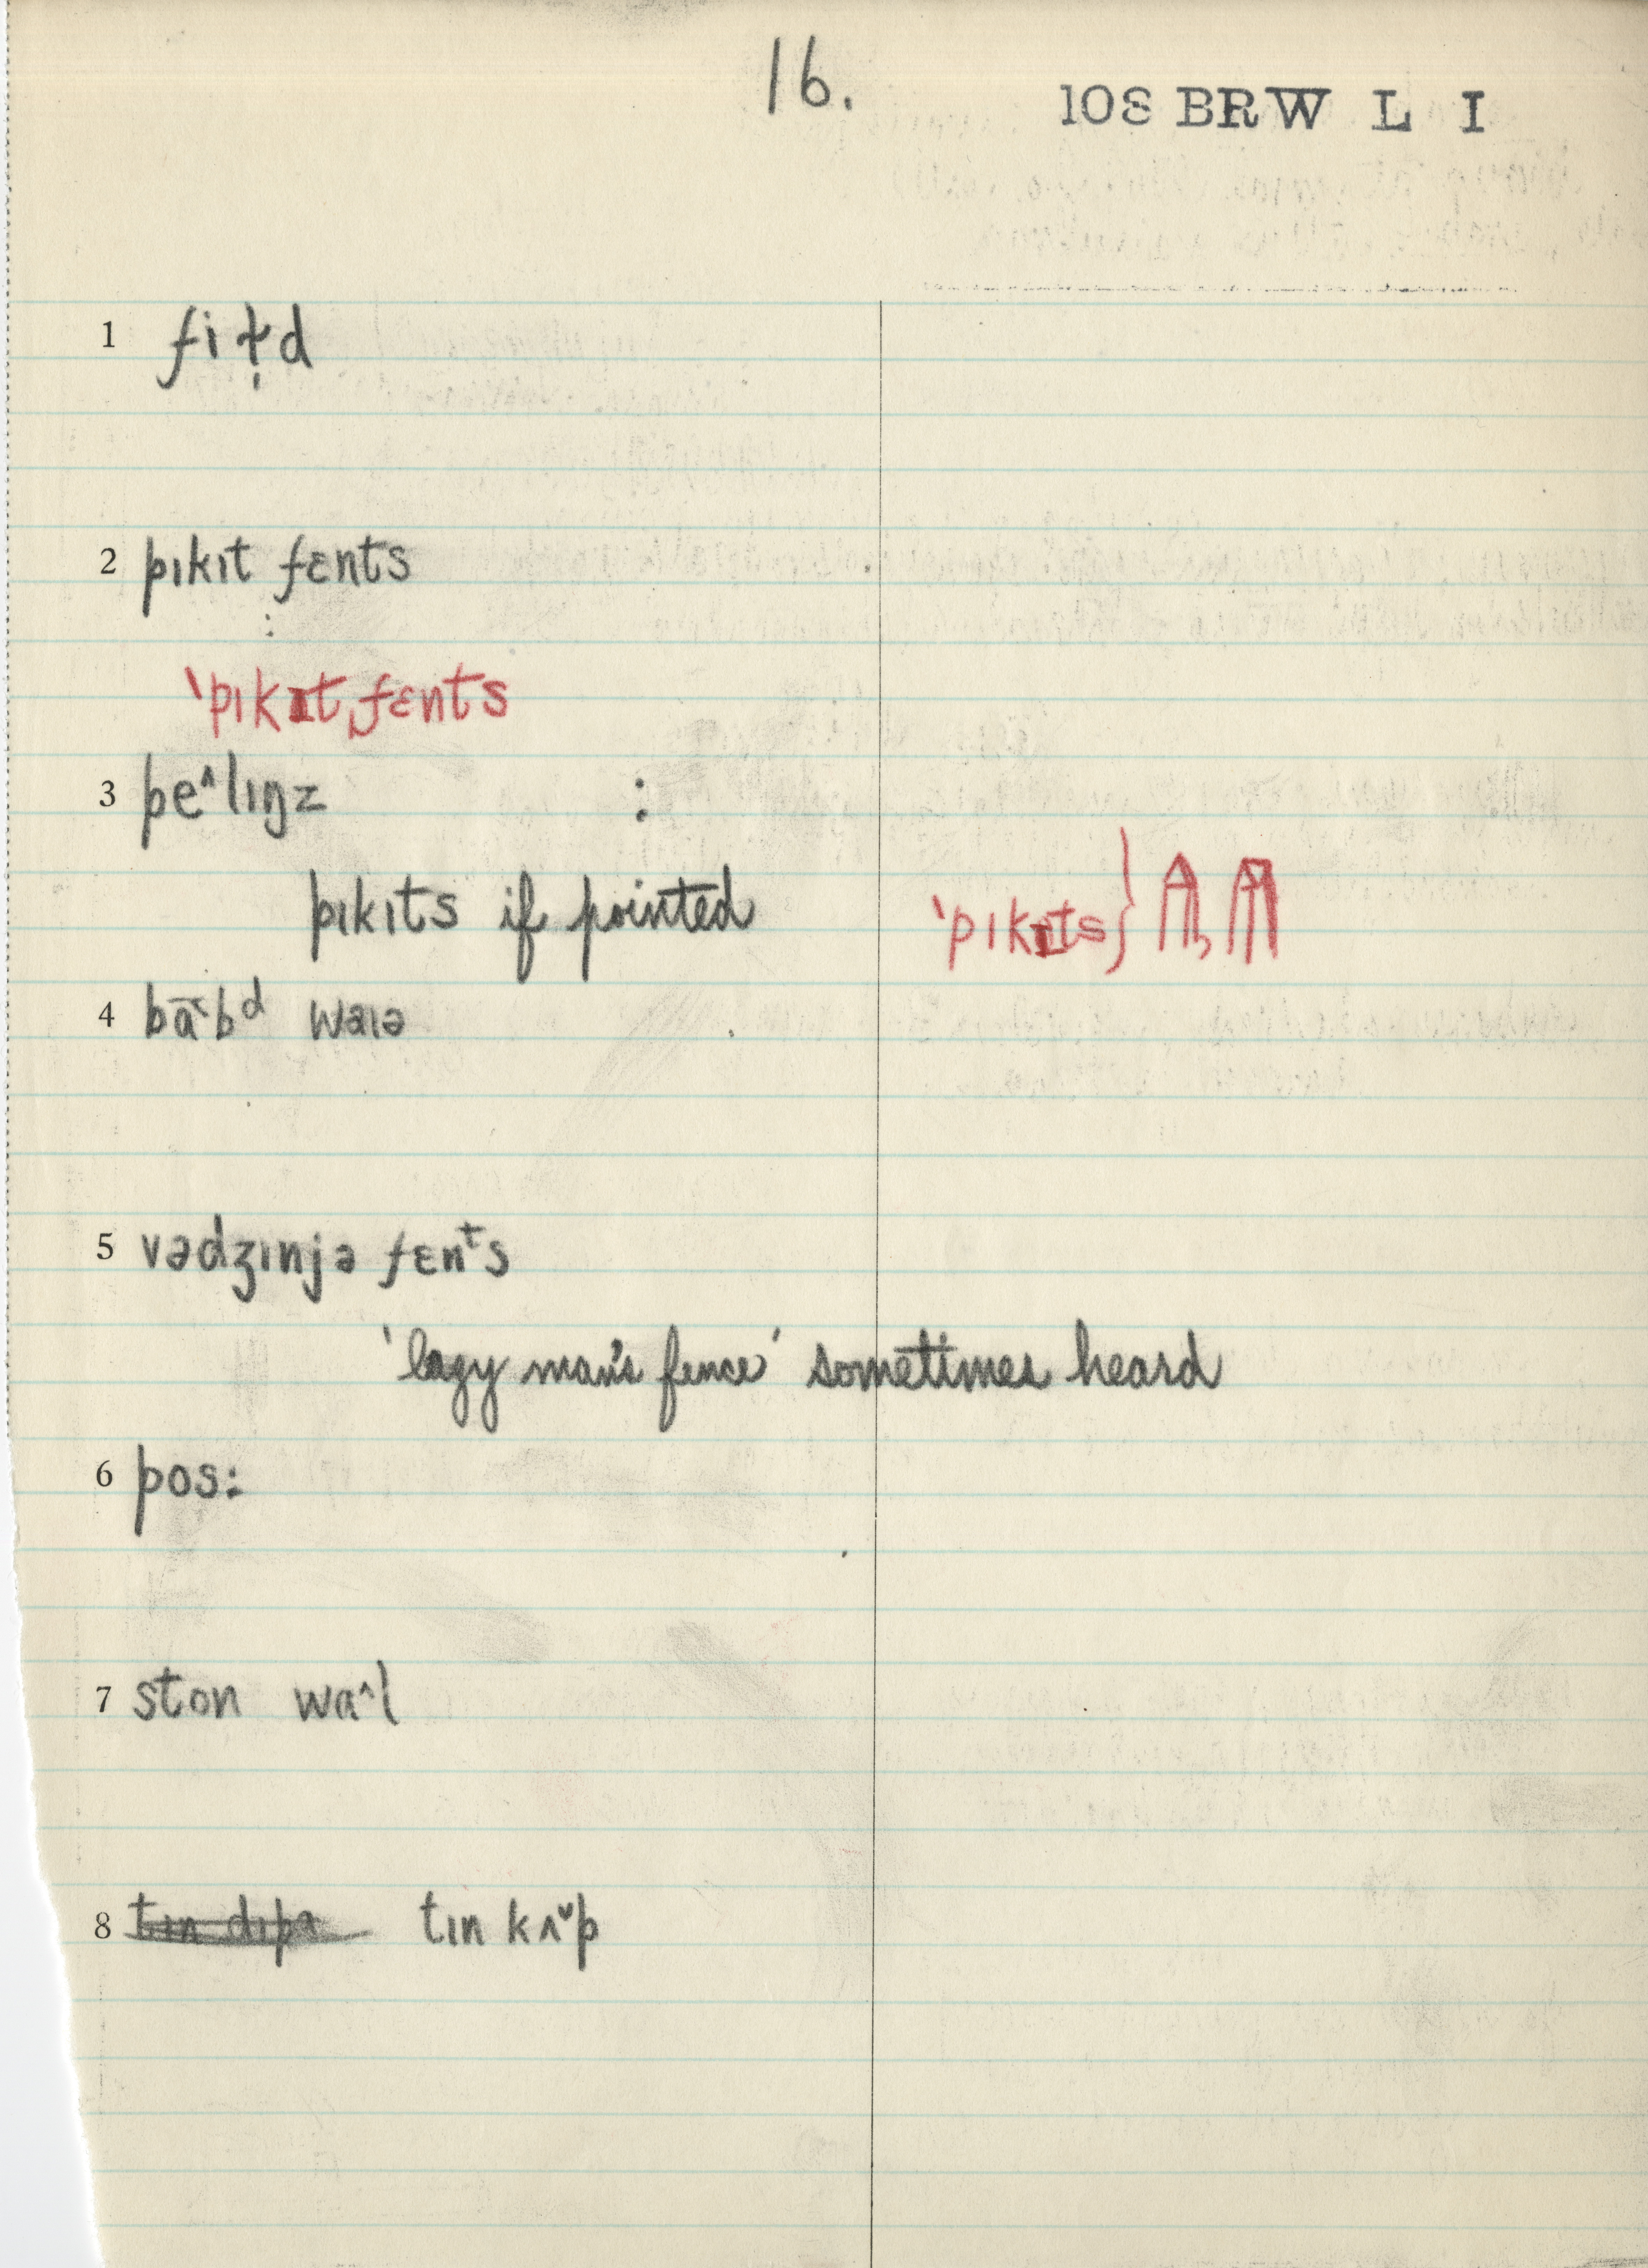 16.
108 BRW L I
1 fiɫ̣d
2 pıkıt fɛnts
:
ˈpıkɪtˌfɛnts
3 pe^lıŋz :
pıkıts if pointed
ˈpıkɪts}
4 ba̅˞bᵈ waıə
5 vədʒınjə fɛnᵗs
'lazy man's fence' sometimes heard
6 pos:
7 ston wɑ^l
8 tın dıpə tın kʌ˅p